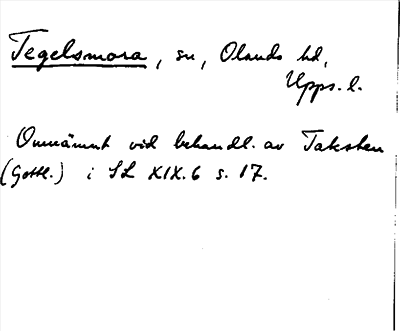 Tegelsmora, sn, Olands hd,
Upps. l.
Omnämnt vid behandl. av Taksten
(Gotl.) i SL XIX.6 s. 17.